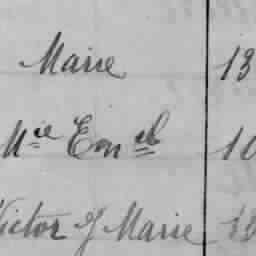 Marie 13
Mie Em 10
Victor & Marie 13